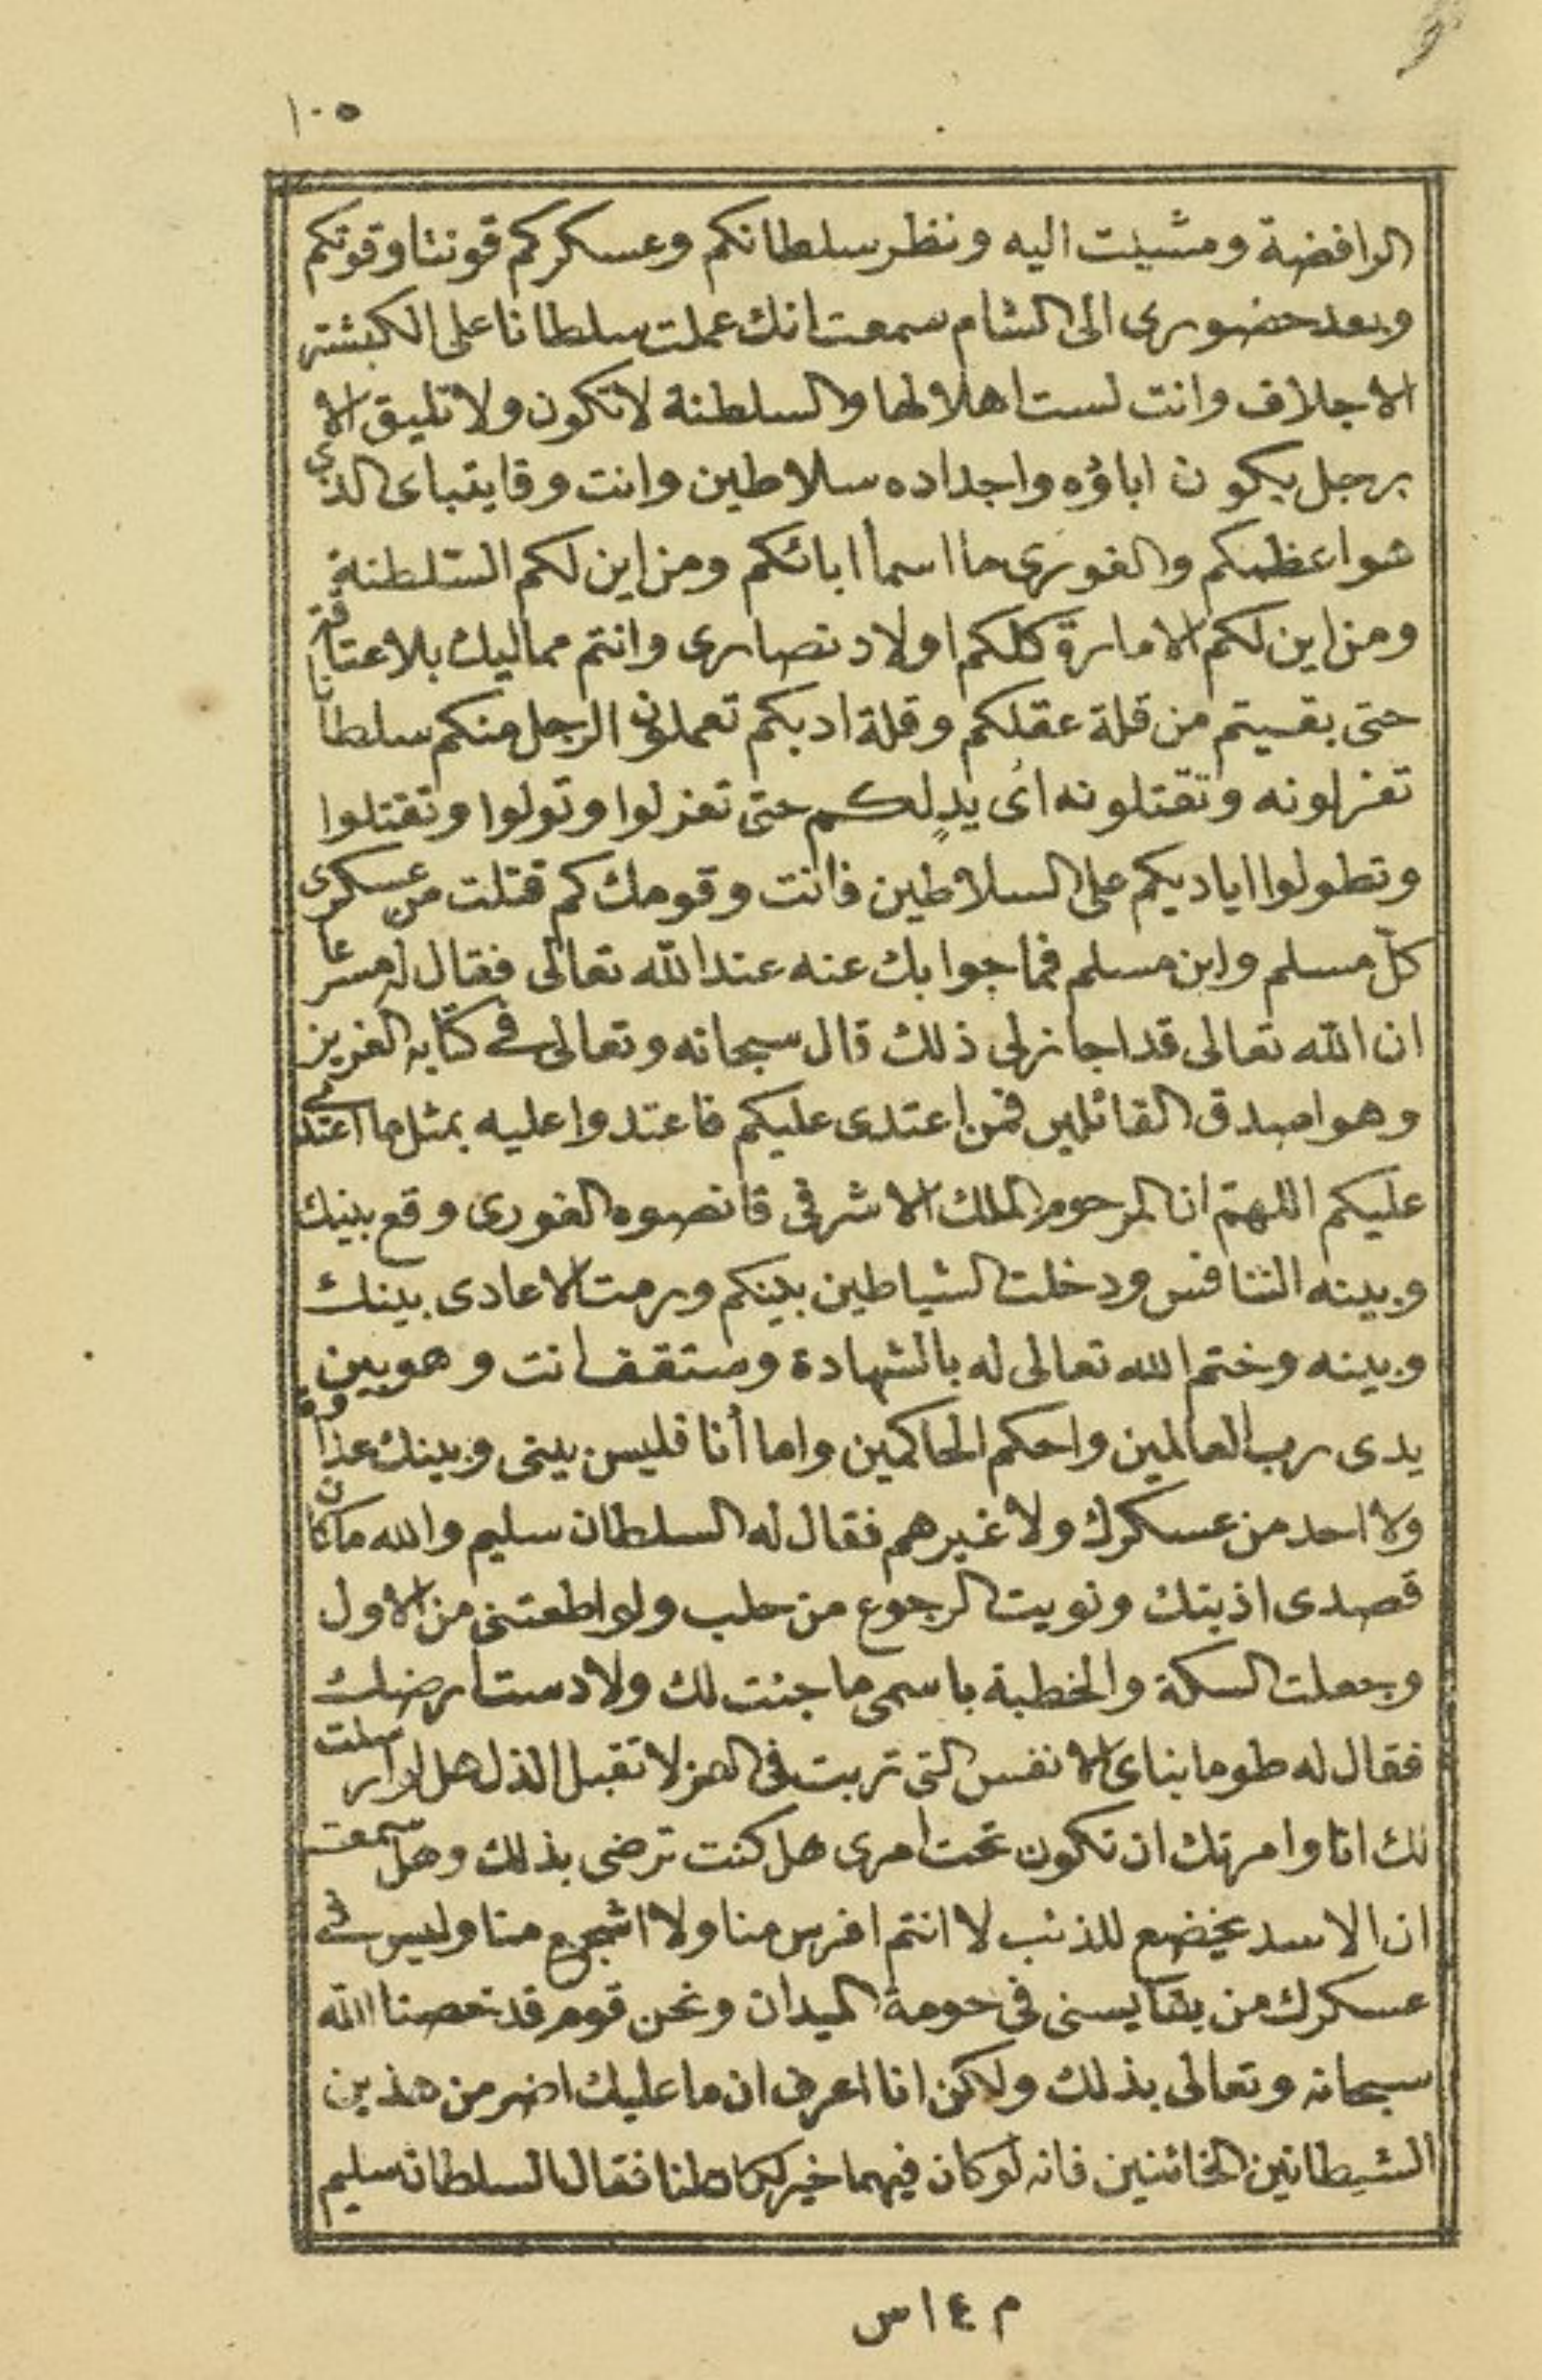 ١٠٥
الرافضة ومشيت اليه ونظر سلطانكم وعسكركم قوتنا وقوتكم
وبعد حضورى الى الشام سمعت انك عملت سلطانا على الكبشة
الاجلاف وانت لست اهلا لها والسلطنة لا تكون ولا تليق الا
برجل يكون اباؤه واجداده سلاطين وانت وقايتباى الذى
هو اعظمكم والغورى ما اسما ابائكم ومن اين لكم السلطنة
ومن اين لكم الامارة كلكم اولاد نصارى وانتم مماليك بلا عتاقة
حتى بقيتم من قلة عقلكم وقلة ادبكم تعملون الرجل منكم سلطانا
تعزلونه وتقتلونه اى يدٍ لكم حتى تعزلوا وتولوا وتقتلوا
وتطولوا اياديكم على السلاطين فانت وقومك كم قتلت من عسكرى
كلّ مسلم وابن مسلم فما جوابك عنه عند الله تعالى فقال له مسرعا
ان الله تعالى قد اجاز لى ذلك قال سبحانه وتعالى فى كتابه العزيز
وهو اصدق القائلين فمن اعتدى عليكم فاعتدوا عليه بمثل ما اعتدى
عليكم اللهمّ ان المرحوم الملك الاشرفى قانصوه الغورى وقع بينك
وبينه التنافس ودخلت الشياطين بينكم ورمت الاعادى بينك
وبينه وختم الله تعالى له بالشهادة وستقف انت وهو بين
يدى رب العالمين واحكم الحاكمين واما أنا فليس بينى وبينك عداوة
ولا احد من عسكرك ولا غيرهم فقال له السلطان سليم والله ما كان
قصدى اذيتك ونويت الرجوع من حلب ولو اطعتنى من الاول
وجعلت السكة والخطبة باسمى ما جئت لك ولا دست ارضك
فقال له طومانباى الانفس التى تربت فى العز لا تقبل الذل هل لو ارسلت
لك انا وامرتك ان تكون تحت امرى هل كنت ترضى بذلك وهل سمعت
ان الاسد يخضع للذئب لا انتم افرس منا ولا اشجع منا وليس فى
عسكرك من يقايسنى فى حومة الميدان ونحن قوم قد خصنا الله
سبحانه وتعالى بذلك ولكن انا اعرف ان ما عليك اضر من هذين
الشيطانين الخائنين فانه لو كان فيهما خير لكان لنا فقال السلطان سليم
م ١٤ س